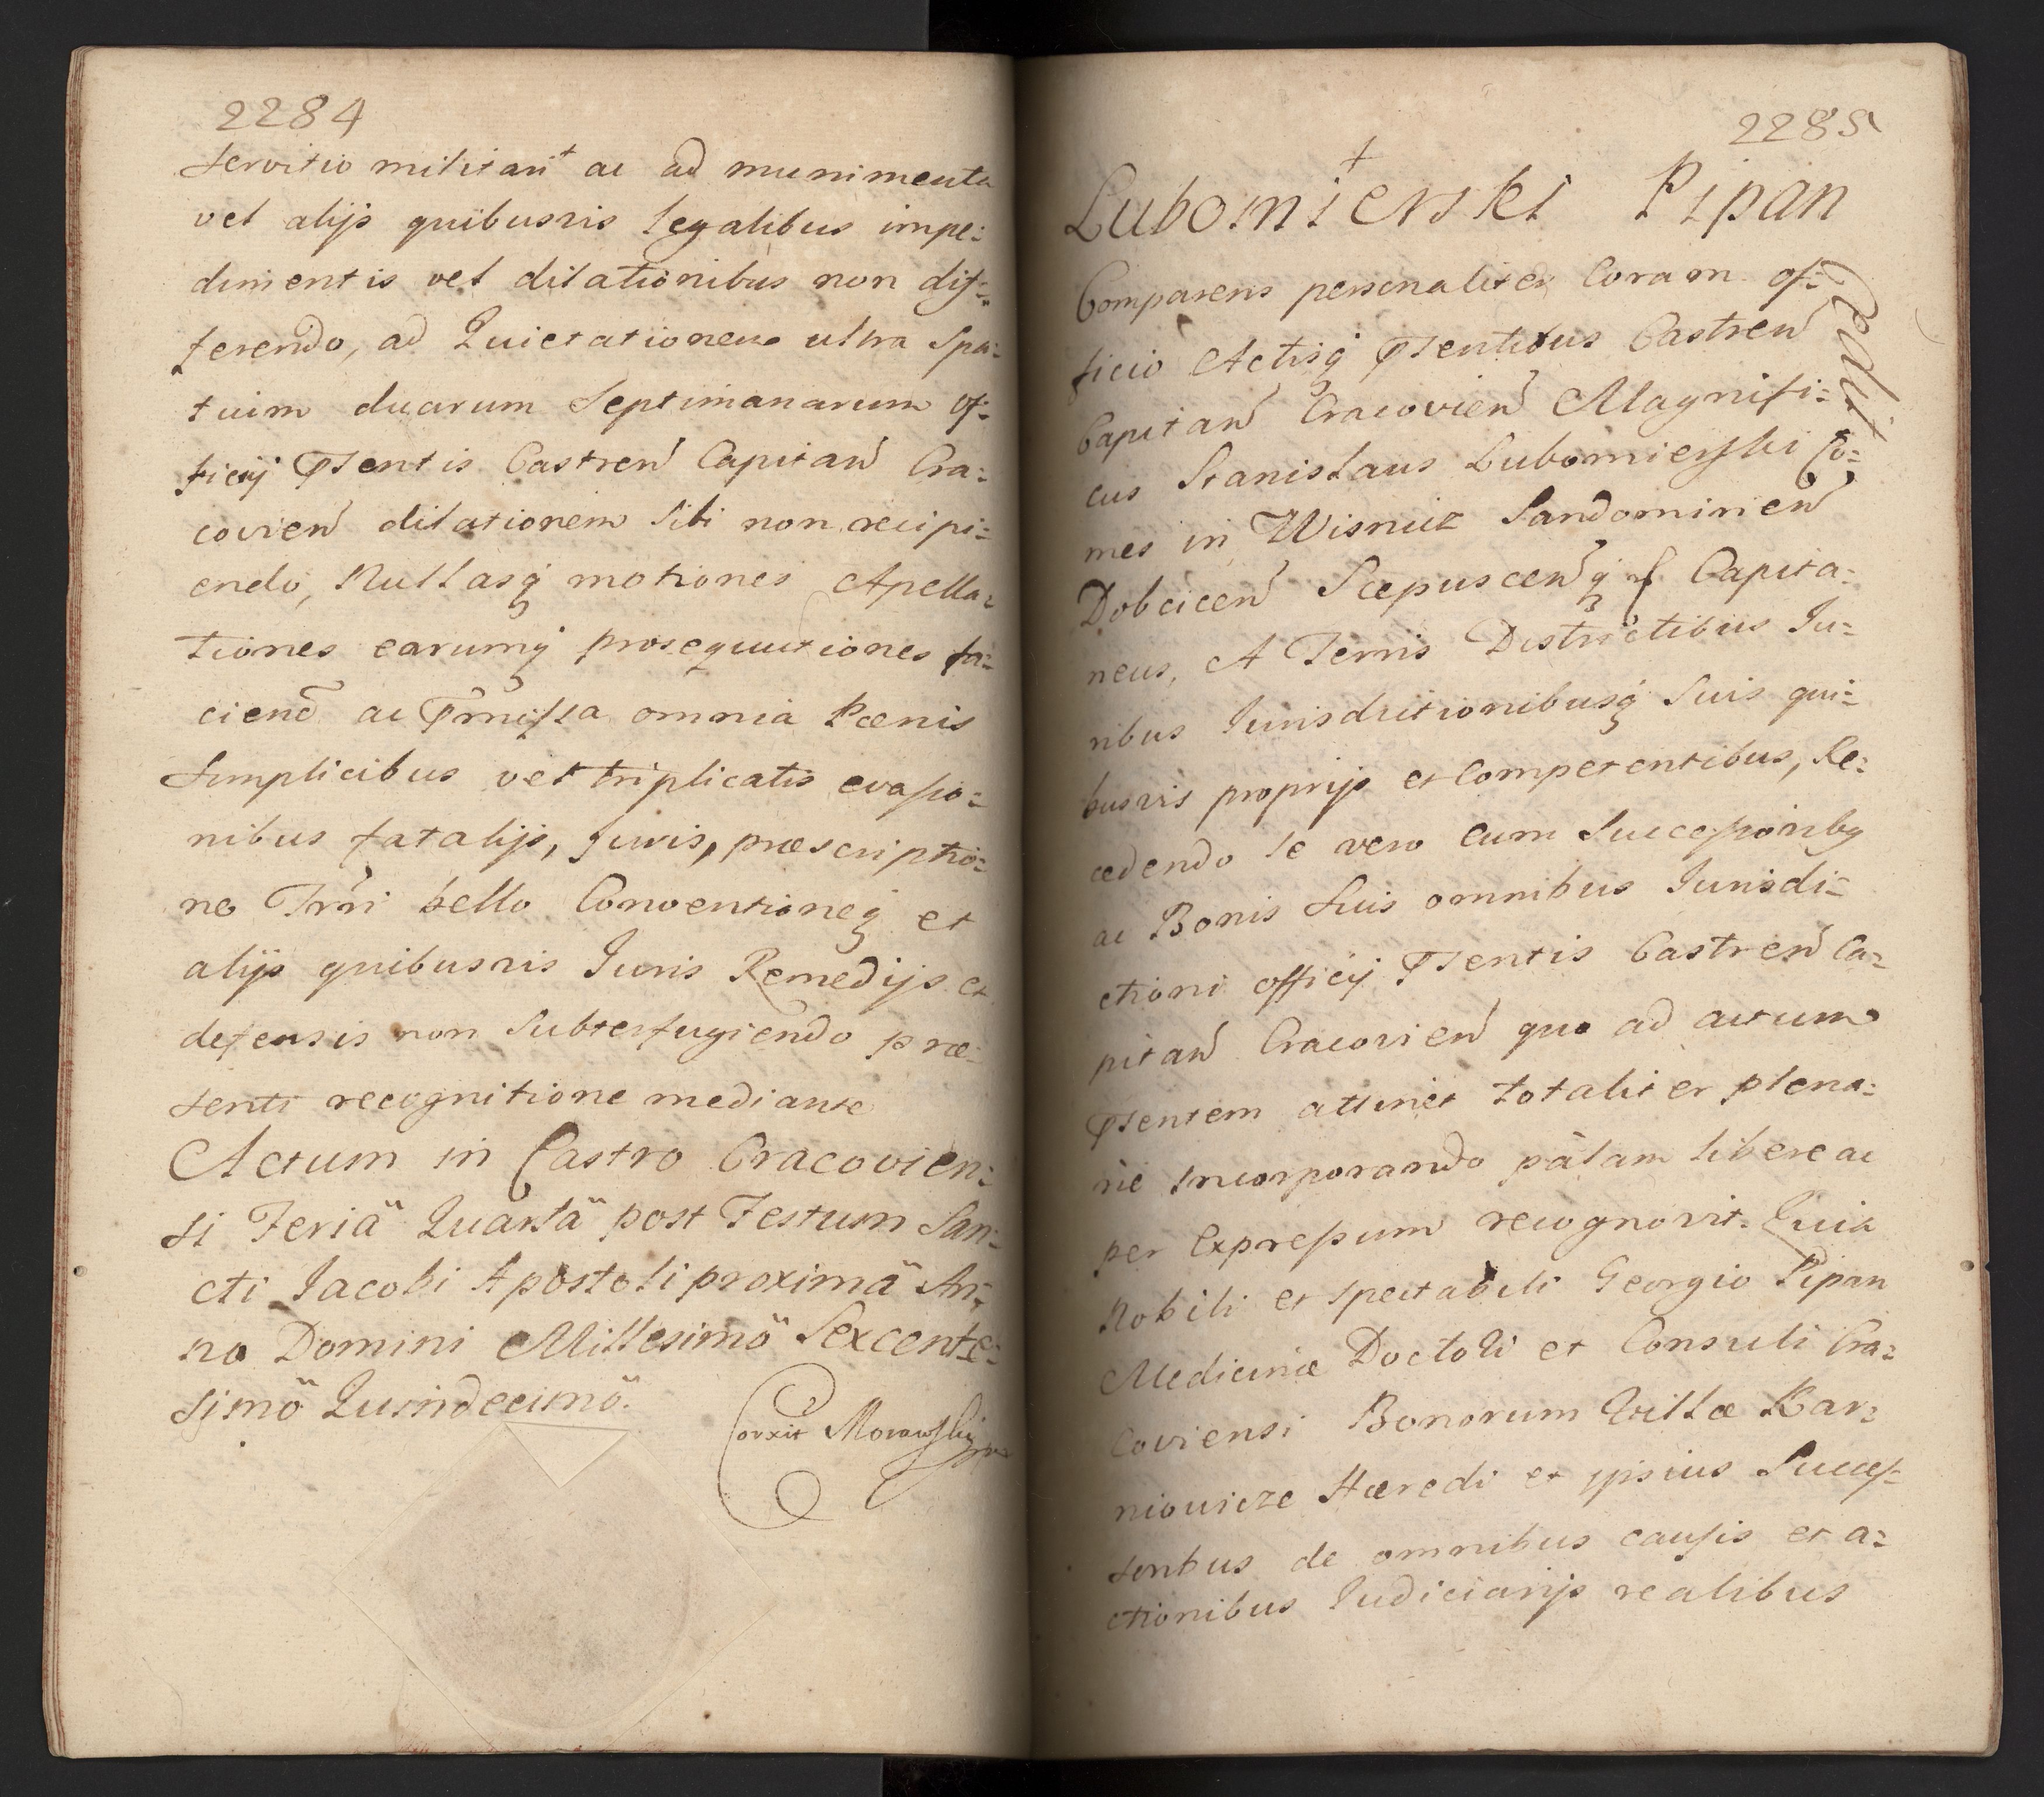 2284
servitio militari ac ad munimenta
vel alijs quibusvis legalibus impe:
dimentis vel dilationibus non dif:
ferendo, ad Quietationem ultra Spa:
tium duarum Septimanarum of:
ficij Psentis Castren Capitan Cra:
covien dilationem Sibi non recipi:
endo, Nullasq motiones Apella:
tiones earumq prosequutiones fa:
ciend ac Pmissa omnia Pœnis
Simplicibus vel triplicatis evasio:
nibus fatalijs, Juris, præscriptio:
ne Trri bello Conventioneq et
alijs quibusvis Juris Remedijs et
defensis non Subterfugiendo præ:
senti recognitione mediante
Actum in Castro Cracovien:
si Feria Quarta post Festum San:
cti Jacobi Apostoli proxima An:
no Domini Millesimo Sexcente:
simo Quindecimo.
Corxit Morawski
2285
Lubomierski Pipan
Comparens personaliter Coram of:
ficio Actisq Psentibus Castren
Capitan Cracovien Magnifi:
cus Stanislaus Lubomierski Co:
mes in Wisnicz Sandomirien
Dobcicen Scepuscenq Capita:
neus, A Terris Districtibus Ju:
ribus Jurisdictionibusq Suis qui:
busvis proprijs et Competentibus, Re:
cedendo se vero cum Successoribq
ac Bonis Suis omnibus Jurisdi:
ctioni officij Psentis Castren Ca:
pitan Cracovien quo ad actum
Psentem attinet totaliter plena:
rie Incorporando palam libere ac
per Expressum recognovit. Quia
Nobili et Spectabili Georgio Pipan
Medicinæ Doctori et Consuli Cra:
coviensi Bonorum Villæ Kar:
niowicze Hæredi et ipsius Succes:
soribus de omnibus causis et a:
ctionibus Judiciarijs realibus